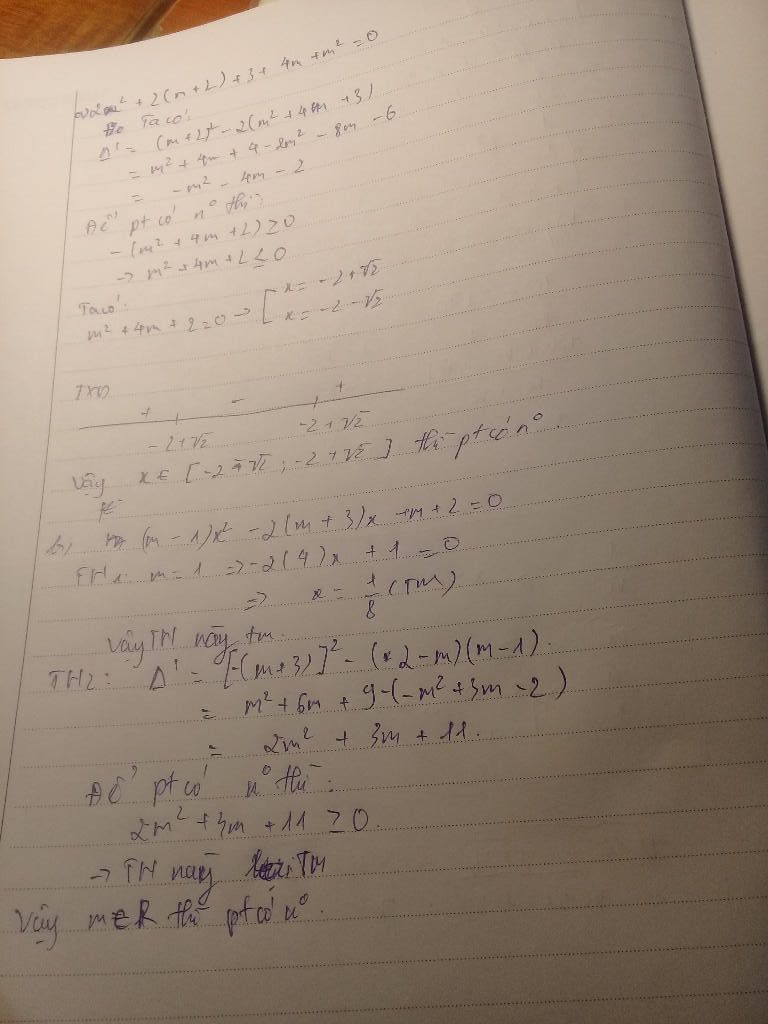 a) 2x² + 2(m+2) + 3 + 4m + m² = 0
Ta có:
Δ' = (m+2)² - 2(m² + 4m + 3)
= m² + 4m + 4 - 2m² - 8m - 6
= -m² - 4m - 2
Để pt có n° thì:
-(m² + 4m + 2) ≥ 0
→ m² + 4m + 2 ≤ 0
Ta có:
m² + 4m + 2 = 0 → [ x = -2 + √2
x = -2 - √2
TXD
+ - +
-2+√2 -2+√2
Vậy x ∈ [-2-√2 ; -2+√2] thì pt có n°
b, (m-1)x² - 2(m+3)x - m + 2 = 0
TH1: m = 1 => -2(4)x + 1 = 0
=> x = 1/8 (TM)
Vậy TH này tm.
TH2: Δ' = [-(m+3)]² - (2-m)(m-1).
= m² + 6m + 9 - (-m² + 3m - 2)
= 2m² + 3m + 11.
Để pt có n° thì:
2m² + 3m + 11 ≥ 0.
→ TH này TM
Vậy m∈R thì pt có n°.